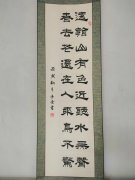 遠觀山有色近聽水無聲
春去花還在人來鳥不驚